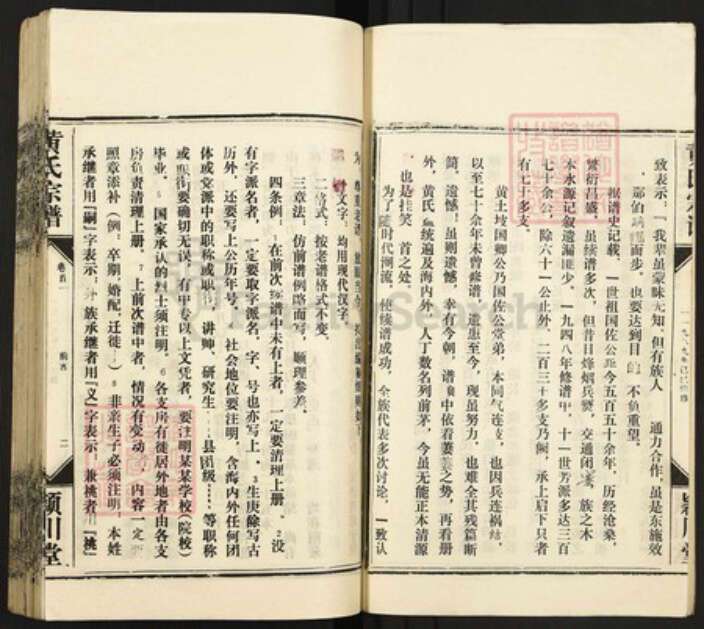 致表示：「我辈虽蒙昧无知，但有族人 通力合作，虽是东施效
而步，也要达到目 不负重望。
据谱史记载，一世祖国佐公距今五百五十余年，历经沧桑，
繁衍昌盛，虽续谱多次，但昔日烽烟兵燹，交通闭 族之木
本水源记叙遗漏匪少。一九四八年修谱中，十一世芳派多达三百
七十余公，除六十一公止外，二百三十多支乃阙，承上启下只者
有七十多支。
黄土坡国卿公乃国佐公堂弟，本同气连支，也因兵连祸结，
以至七十余年未曾修谱，遗患至今，现虽努力，也难全其残篇断
简，遗憾！虽则遗憾，幸有今朝，谱 中依着 之势，再看册
外，黄氏 统遍及海内外，人丁数名列前茅，今虽无能正本清源
，也是挂笑 首之处。
为了随时代潮流，使续谱成功，全族代表多次讨论，一致认
黄氏宗谱
卷首
二
颍川堂
文字：均用现代汉字。
二格式：按老谱格式不变。
三章法，仿前谱例略而写，顺理参差。
四条例：在前次 谱中未有上者，一定要清理上册。2没
有字派名者，一定要取字派名，字、号也亦写上，3生庚除写古
历外，还要写上公历年号，4社会地位要注明，含海内外任何团
体或党派中的职称或职 讲师、研究生 县团级 等职称
或职衔要确切无误，有中专以上文凭者，要注明某某学校（院校）
毕业。5国家承认的烈士须注明。6各支所有徙居外地者由各支
房负责清理上册。7上前次谱中者，情况有变动，内容一定
照章添补（例：卒期，婚配，迁徙 ）8非亲生子必须注明，本姓
承继者用「嗣」字表示，外族承继者用「义」字表示，兼桃者用「桃」